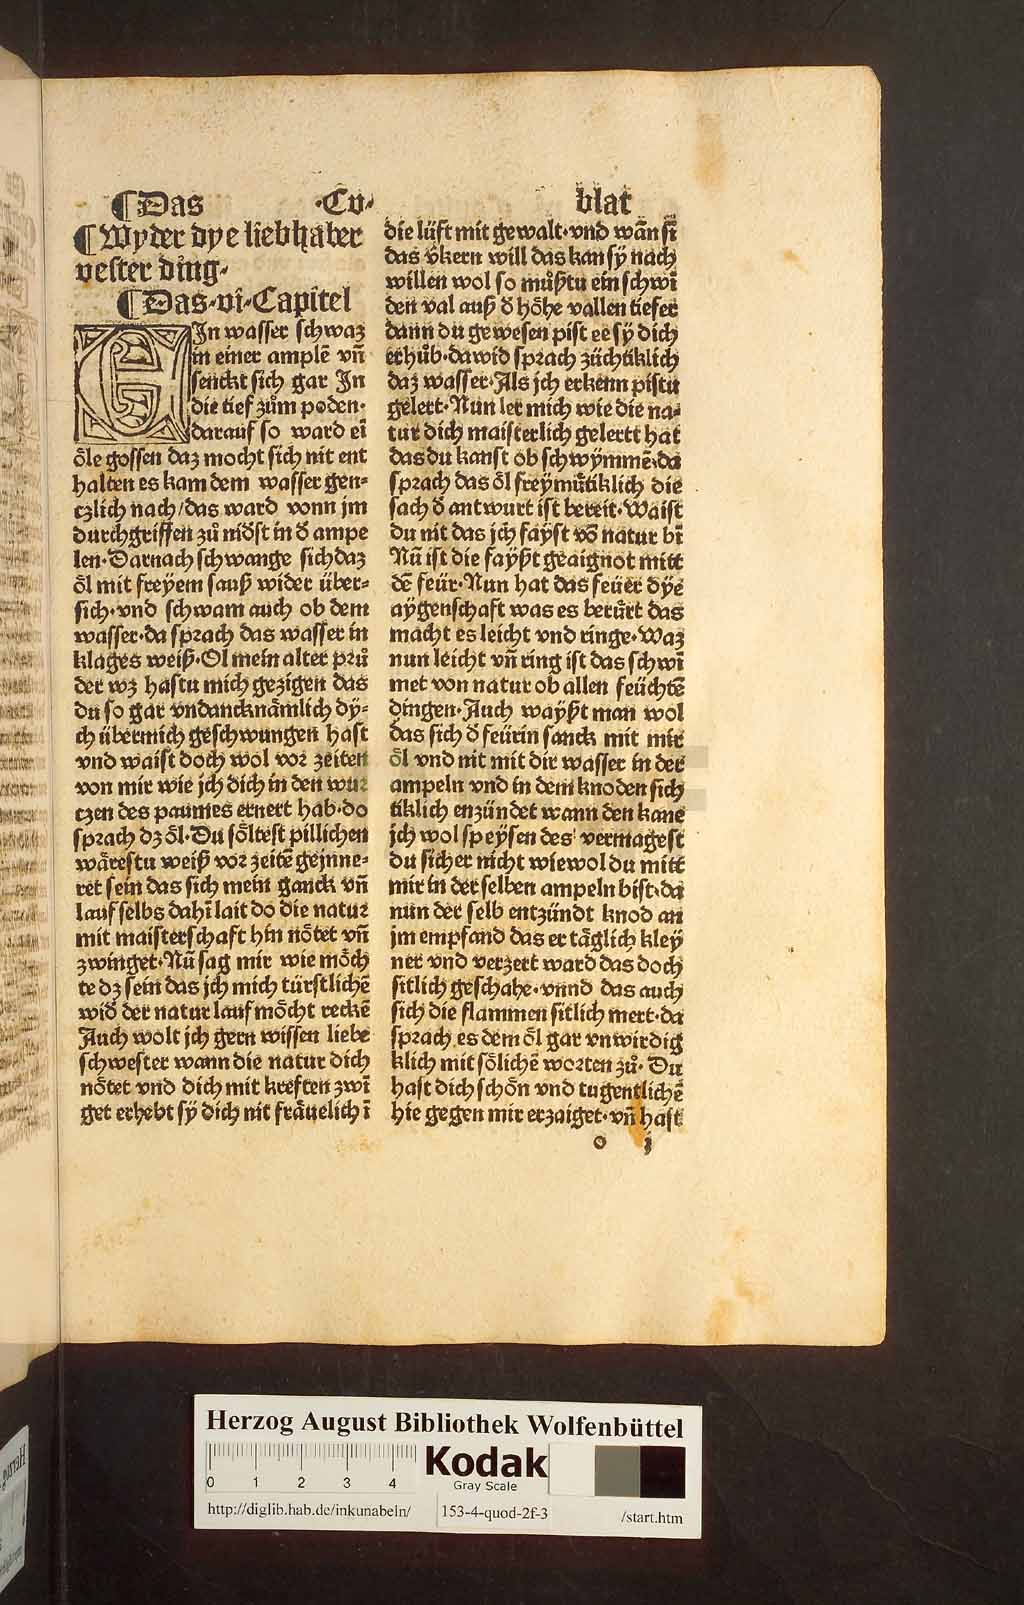 ¶Das ·Cv· blat
¶Wyder dye liebhaber
vester dĭng·
¶Das·vi·Capitel
EIn wasser schwaz
in einer amplē vn̄
senckt sich gar In
die tief zům poden·
darauf so ward eī
öle gossen daz mocht sich nit ent
halten es kam dem wasser gen⸗
czlich nach/das ward vonn jm
durchgriffen zů nidst in d̕ ampe
len·Darnach schwange sich daz
öl mit freyem sauß wider über⸗
sich·vnd schwam auch ob dem
wasser·da sprach das wasser in
klages weiß·Ol mein alter prů
der wz hastu mich gezigen das
du so gar vndancknämlich dy⸗
ch übermich geschwungen hast
vnd waist doch wol vor zeiten
von mir wie jch dich in den wur
czen des paumes ernert hab·do
sprach dz öl·Du söltest pillichen
wärestu weiß vor zeitē gejnne⸗
ret sein das sich mein ganck vn̄
lauf selbs dahī lait do die natur
mit maisterschaft hin nötet vn̄
zwinget·Nū sag mir wie möch
te dz sein das jch mich türstlichē
wid̕ der natur lauf möcht reckē
Auch wolt jch gern wissen liebe
schwester wann die natur dich
nötet vnd dich mit kreften zwī
get erhebt sÿ dich nit fräuelich ī
die lüft mit gewalt·vnd wān sÿ
das v̕kern will das kan sÿ nach
willen wol so můßtu ein schwī
den val auß d̕ höhe vallen tiefer
dann du gewesen pist ee sÿ dich
erhůb·da wid̕ sprach züchtiklich
daz wasser·Als jch erkenn pistu
gelert·Nun ler mich wie die na⸗
tur dich maisterlich gelertt hat
das du kanst ob schwÿmmē·da
sprach das öl freÿmůtiklich die
sach d̕ antwurt ist bereit·Waist
du nit das jch faÿst vō natur bī
Nū ist die faÿßt geaignot mitt
dē feür·Nun hat das feüer dÿe
aÿgenschaft was es berůrt das
macht es leicht vnd ringe·Waz
nun leicht vn̄ ring ist das schwī
met von natur ob allen feüchtē
dingen·Auch waÿßt man wol
das sich d̕ feürin sanck mit mir
öl vnd nit mit dir wasser in der
ampeln vnd in dem knoden sich
tiklich enzündet wann den kane
jch wol speÿsen des vermagest
du sicher nicht wiewol du mitt
mir in der selben ampeln bist·da
nun der selb entzündt knod an
jm empfand das er täglich kleÿ
ner vnd verzert ward das doch
sitlich geschahe·vnnd das auch
sich die flammen sitlich mert·da
sprach es dem öl gar vnwirdig
klich mit sölichē worten zů·Du
hast dich schön vnd tugentlichē
hie gegen mir erzaiget·vn̄ hast
o j
Herzog August Bibliothek Wolfenbüttel
0 1 2 3 4
Kodak
Gray Scale
http://diglib.hab.de/inkunabeln/ 153-4-quod-2f-3 /start.htm